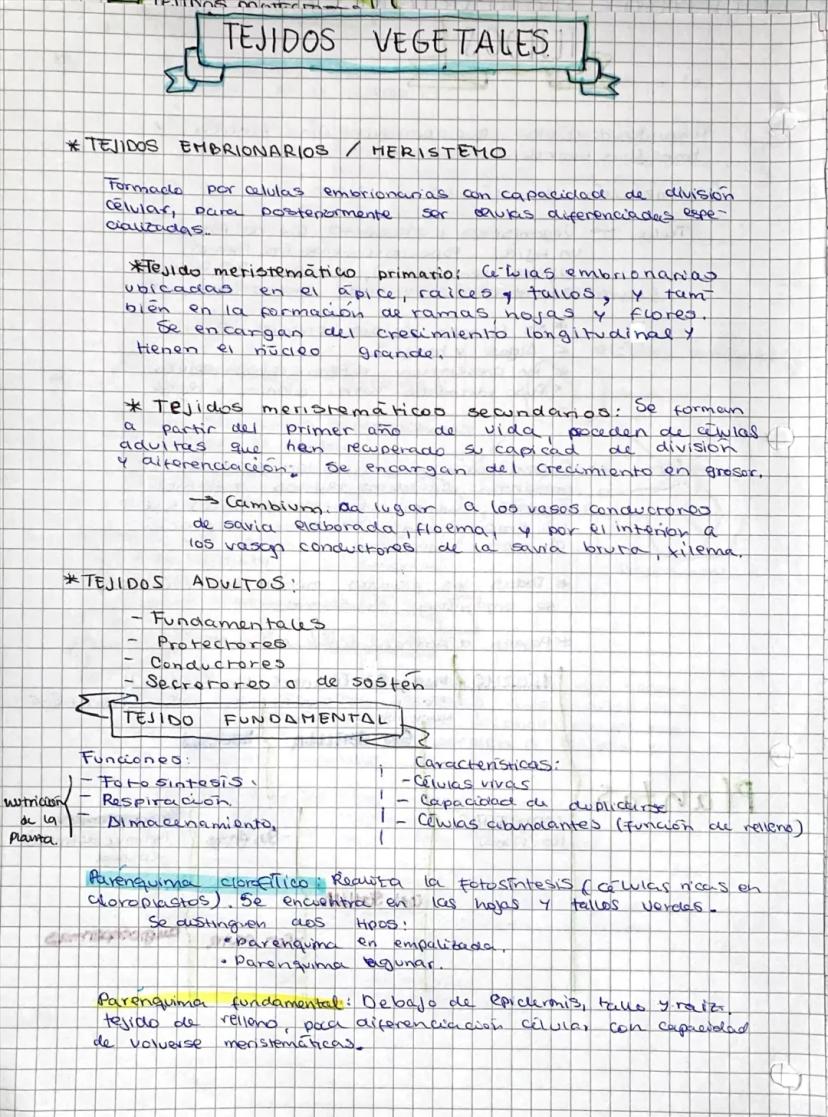 TEJIDOS VEGETALES
* TEJIDOS EMBRIONARIOS / MERISTEMO
Formado por celulas embrionarias con capacidad de división
célular, para posteriormente ser células diferenciadas espe-
cializadas.
*Tejido meristemático primario: Células embrionarias
ubicadas en el ápice, raíces y tallos, y tam-
bién en la formación de ramas, hojas y flores.
Se encargan del crecimiento longitudinal y
tienen el núcleo grande.
* Tejidos meristemáticos secundarios: Se forman
a partir del primer año de vida, proceden de células
adultas que han recuperado su capicad de división
y diferenciación. Se encargan del crecimiento en grosor.
→ Cambium. Da lugar a los vasos conductores
de savia elaborada, floema, y por el interior a
los vasos conductores de la savia bruta, xilema.
*TEJIDOS ADULTOS:
- Fundamentales
- Protectores
- Conductores
- Secretores o de sostén
TEJIDO FUNDAMENTAL
Funciones:
- Fotosíntesis.
- Respiración.
- Almacenamiento.
nutrición
de la
planta.
Características:
- Células vivas
- Capacidad de duplicarse
- Células abundantes (función de relleno)
Parénquima clorofílico: Realiza la fotosíntesis (células ricas en
cloroplastos). Se encuentra en las hojas y tallos verdes.
Se distinguen dos tipos:
• parénquima en empalizada.
• Parénquima lagunar.
Parénquima fundamental: Debajo de epidermis, tallo y raíz.
tejido de relleno, poca diferenciacion célular con capacidad
de volverse meristemáticas.